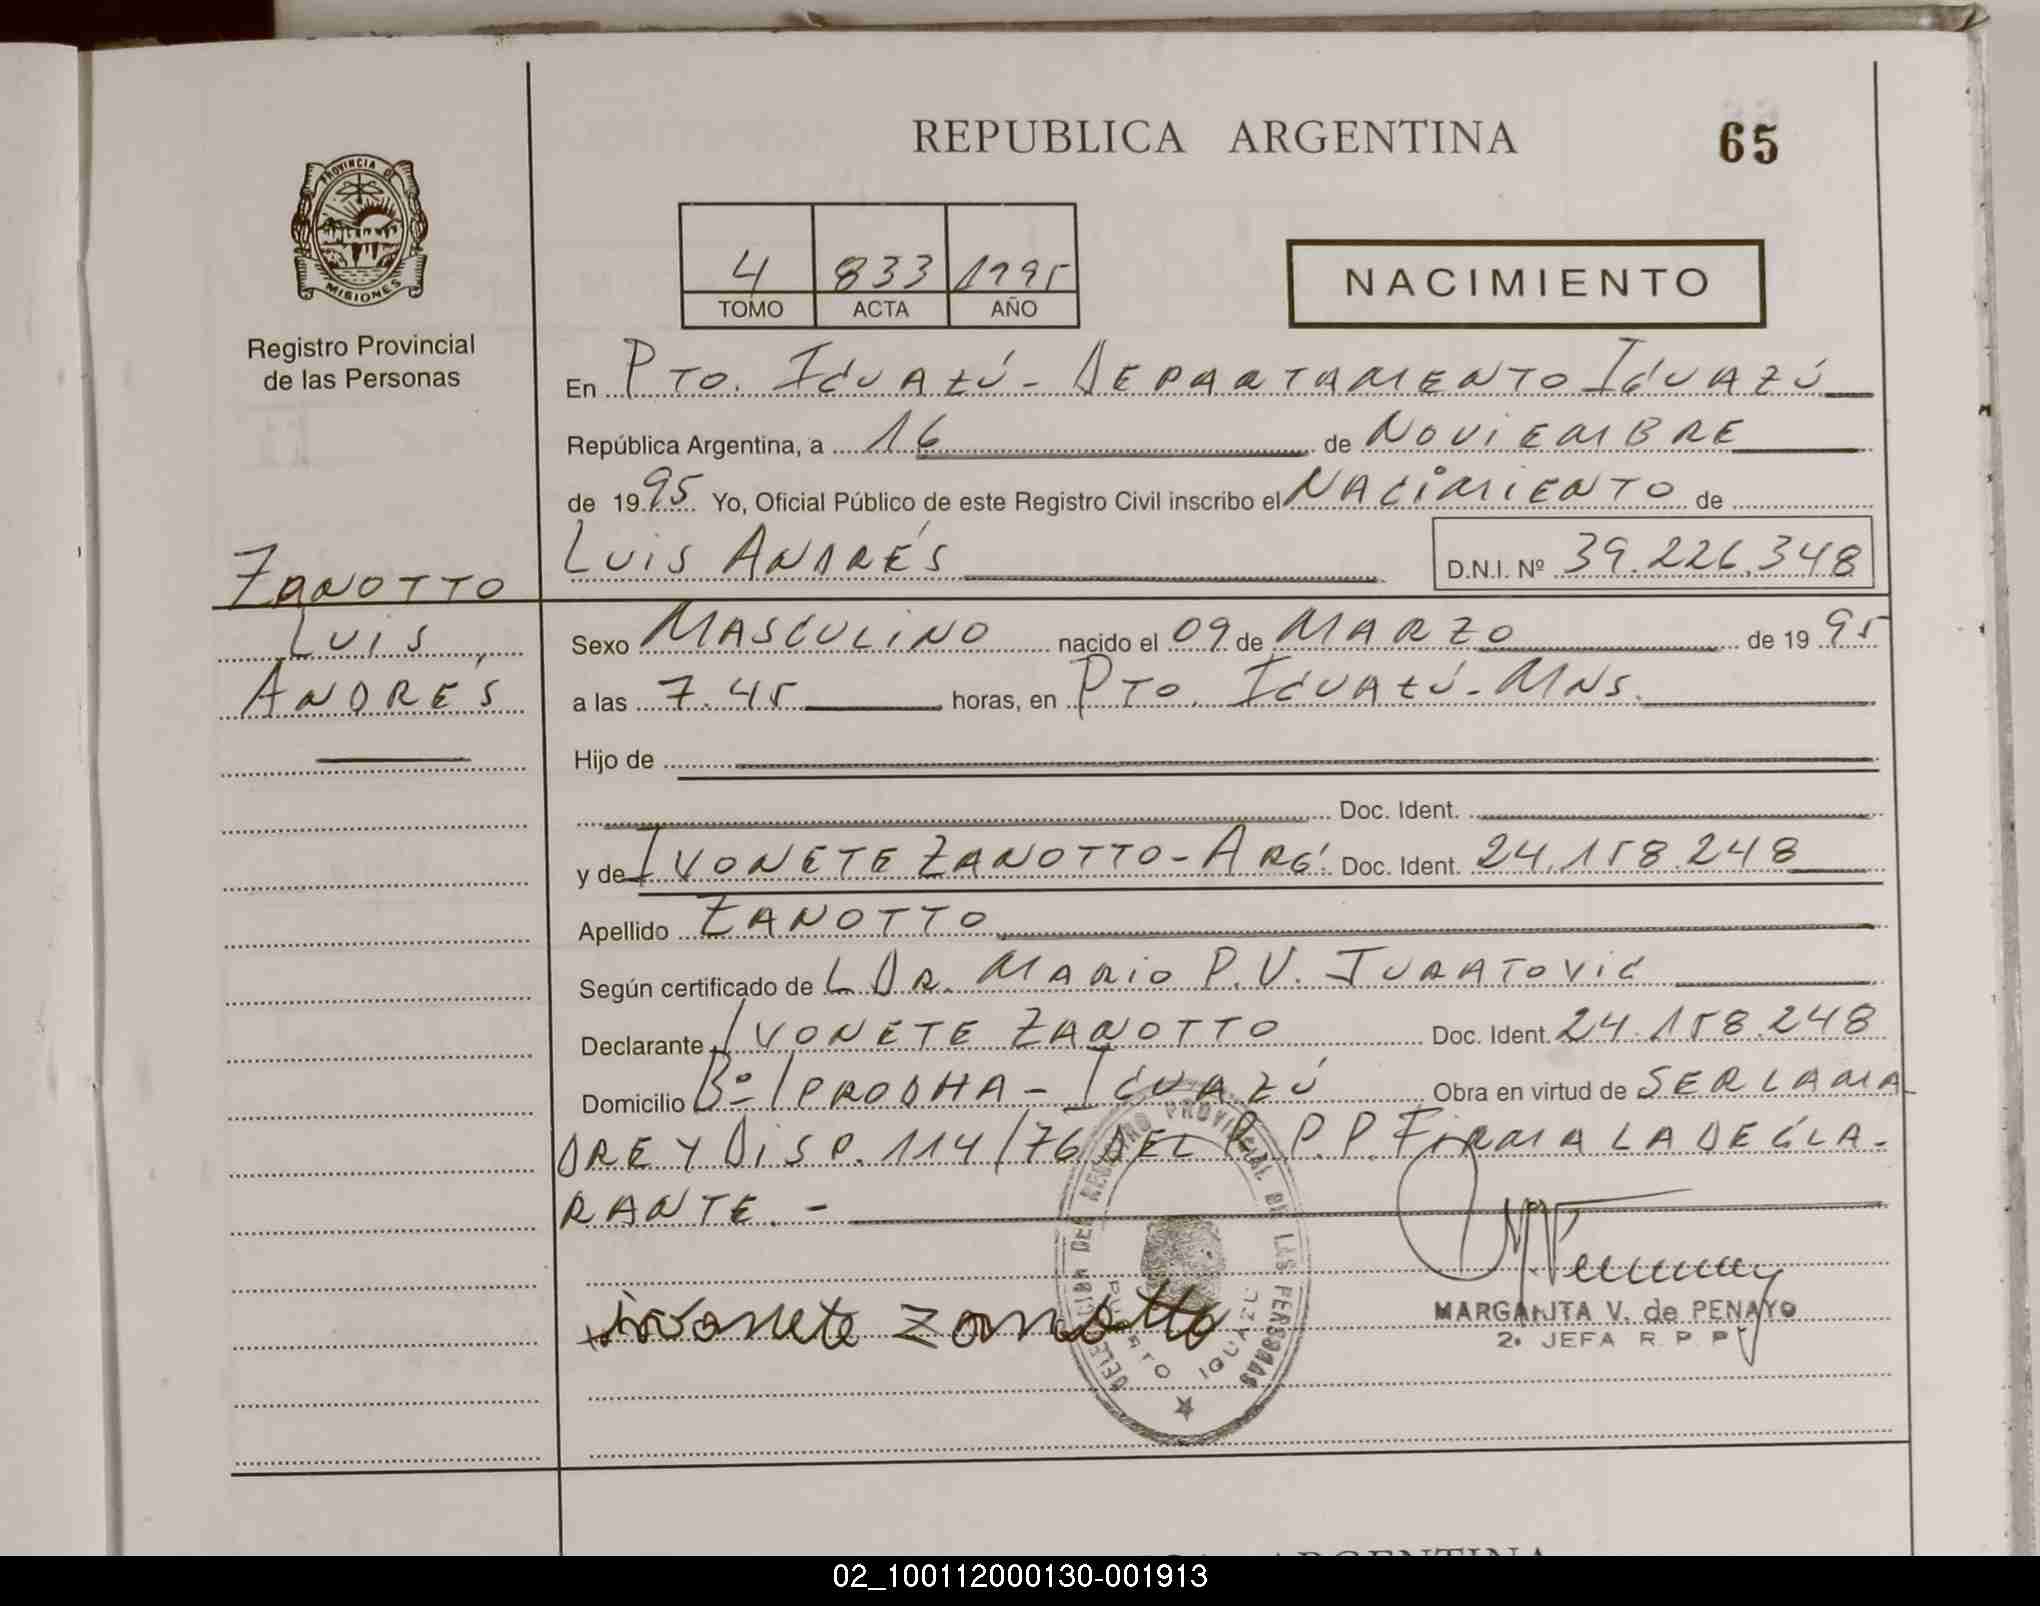 REPUBLICA ARGENTINA
65
PROVINCIA DE
MISIONES
Registro Provincial
de las Personas
4 833 1995
TOMO ACTA AÑO
NACIMIENTO
En PTO. IGUAZÚ - DEPARTAMENTO IGUAZÚ
República Argentina, a 16 de NOVIEMBRE
de 1995 Yo, Oficial Público de este Registro Civil inscribo el NACIMIENTO de
LUIS ANDRÉS D.N.I. Nº 39.226.348
ZANOTTO
LUIS
ANDRÉS
Sexo MASCULINO nacido el 09 de MARZO de 1995
a las 7.45 horas, en PTO. IGUAZÚ - MNS.
Hijo de
Doc. Ident.
y de IVONETE ZANOTTO - ARG. Doc. Ident. 24.158.248
Apellido ZANOTTO
Según certificado de L DR. MARIO P.V. JURATOVIC
Declarante IVONETE ZANOTTO Doc. Ident. 24.158.248
Domicilio Bº IPRODHA - IGUAZÚ Obra en virtud de SER LA MA-
DRE Y DISP. 114/76 DEL R.P.P. FIRMA LA DECLA-
RANTE. -
DELEGACION DEL REGISTRO PROVINCIAL DE LAS PERSONAS
PUERTO IGUAZU
ivonete zanotto
MARGARITA V. de PENAYO
2º JEFA R. P. P.
02_100112000130-001913